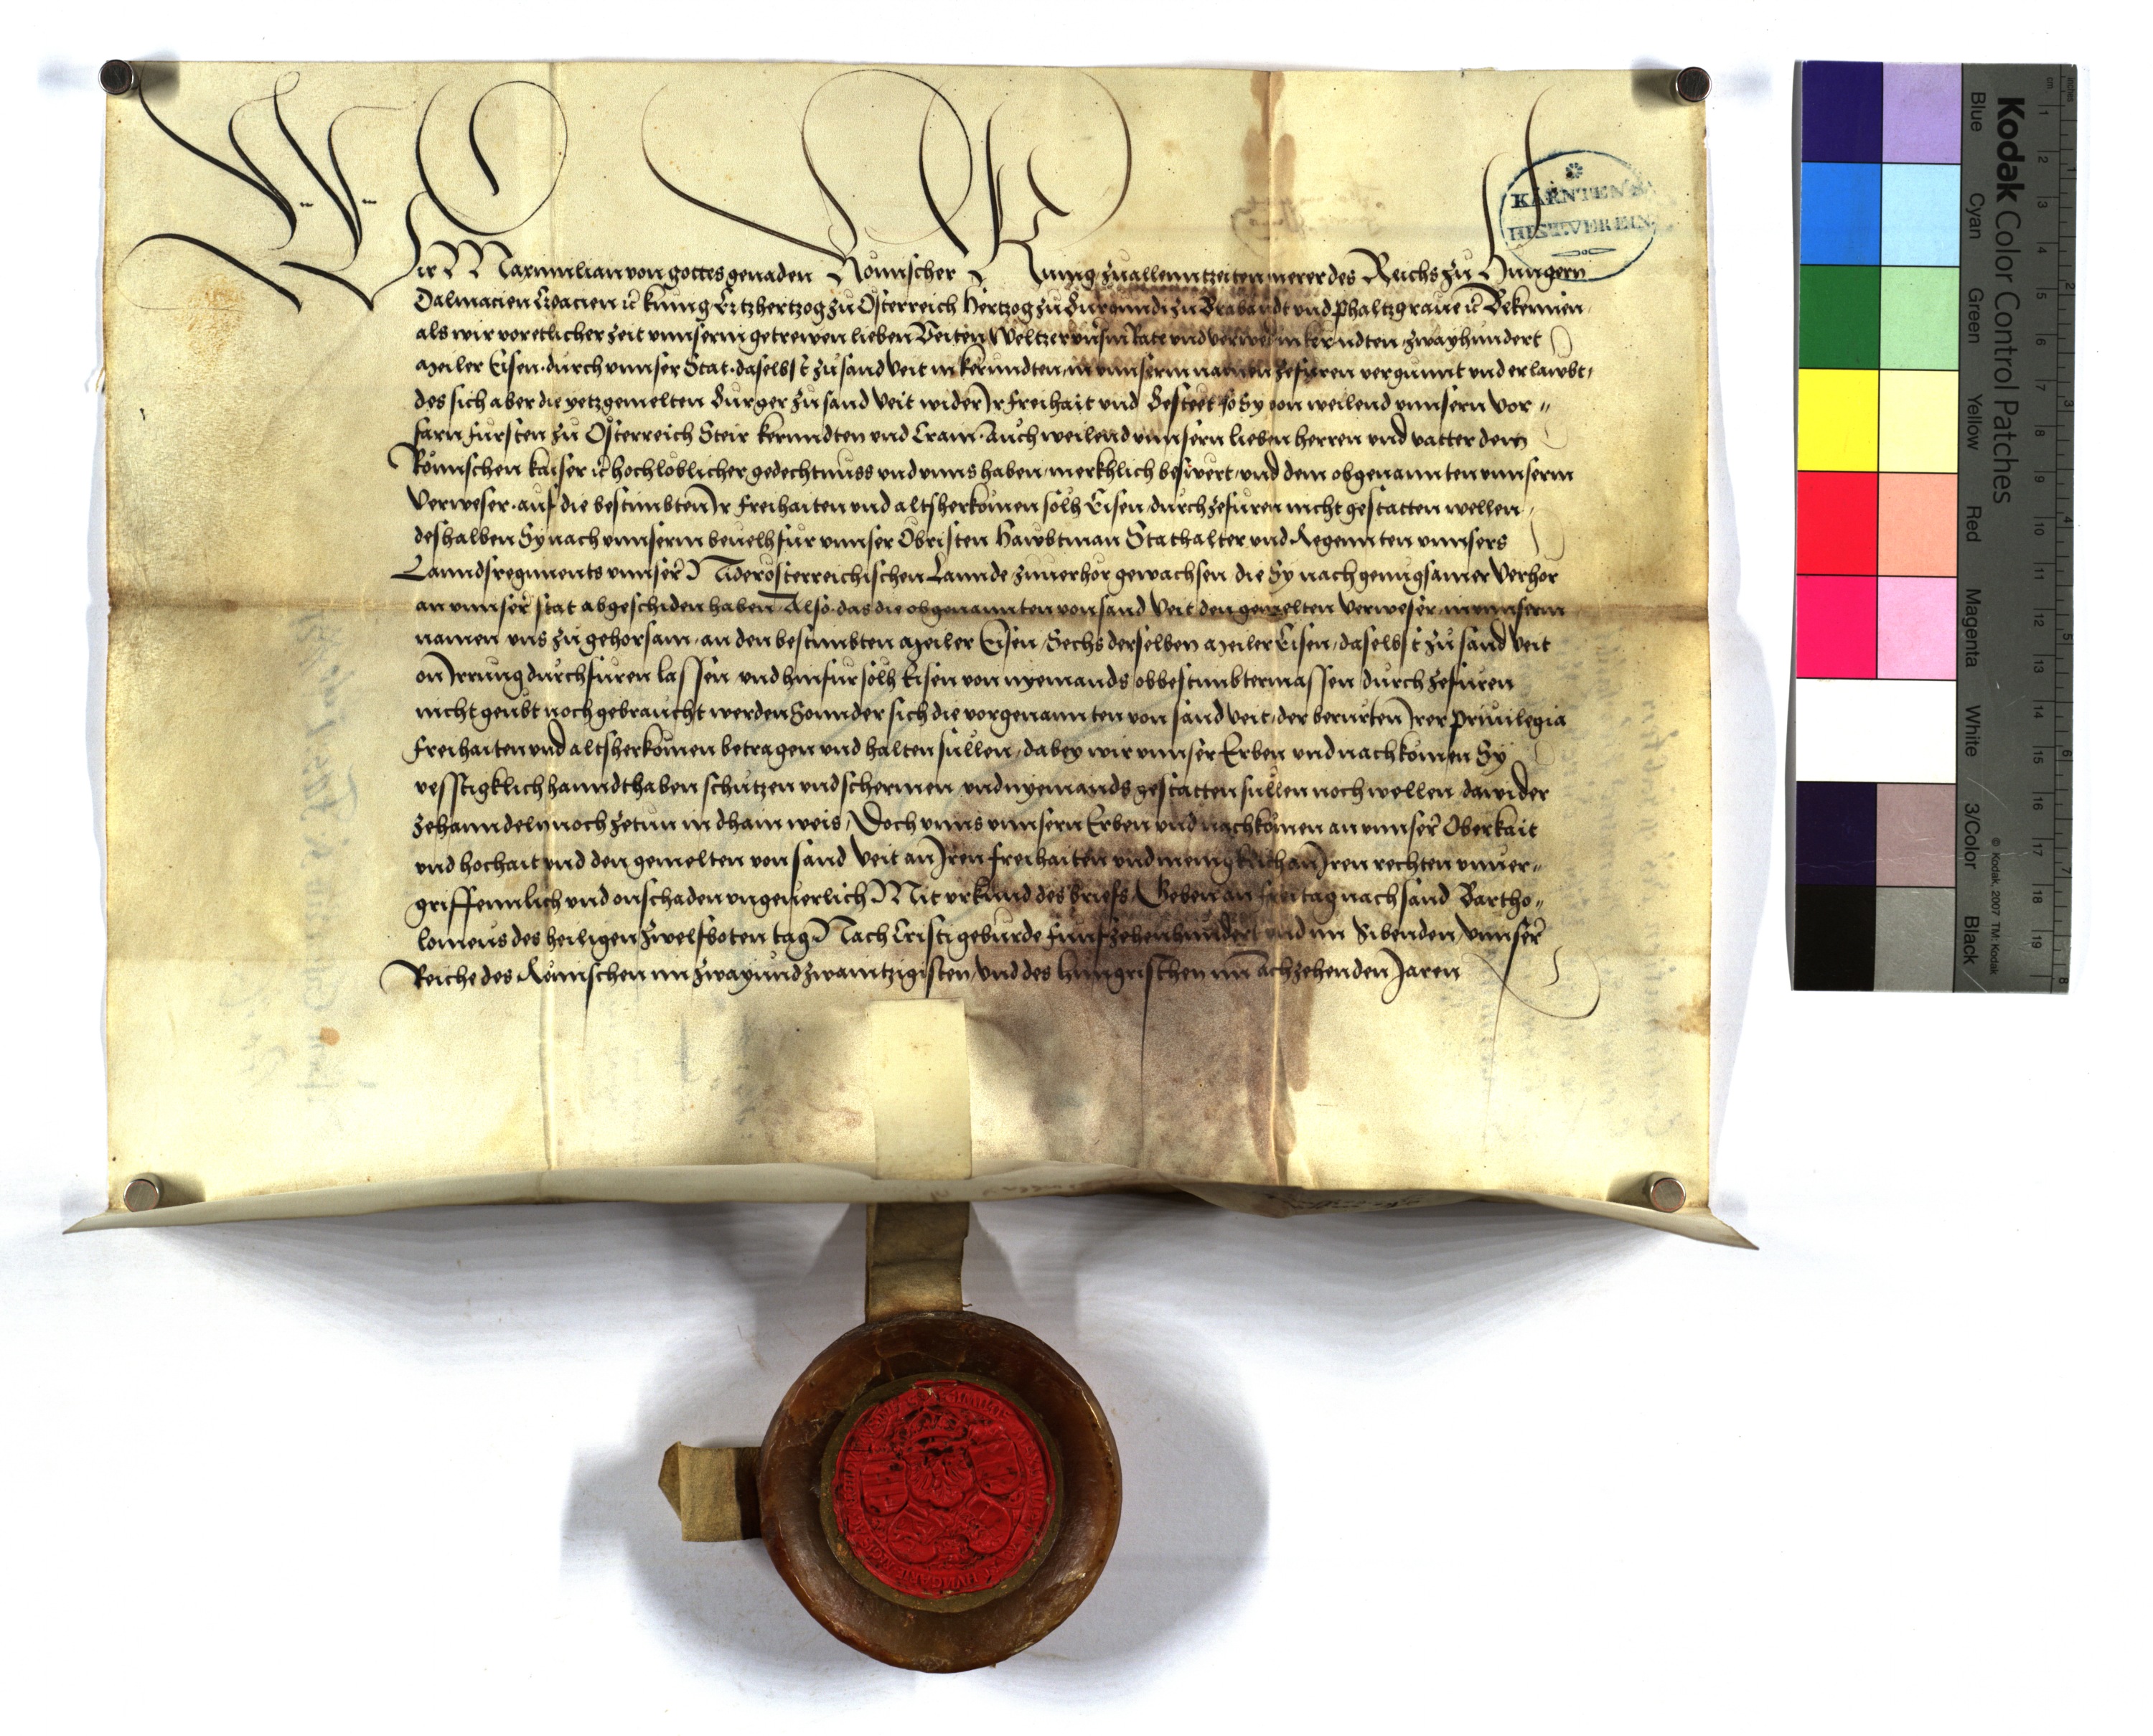 Wir Maximilian von gottes genaden Römischer Kunig zuallenntzeiten merer des Reichs zu Hungern
Dalmacien Croacien ꝛc̃ kunig Ertzhertzog zu Österreich Hertzog zu Burgundi zu Brabandt und phaltzgraue ꝛc̃ Bekennen
als wir voretlicher zeit vnnserm getrewen lieben Veiten Weltzer vnserm Rate vnd verweser in kernndten zwayhundert
Meiler Eisen durch vnnser Stat daselbst zu sand Veit in kerrndten in vnnserm namen zefuren vergunnt vnd erlawbt,
des sich aber die yetzgemelten Burger zu sand Veit wider Ir Freihait vnd Besteet so Sy von weilend vnnsern vor„
farn Fursten zu Österreich Steir kerrndten vnd Crain Auch weilend vnnserm lieben herren vnd vatter dem
Römischen kaiser ꝛc̃ hochloblicher gedechtnuss vnd vnns haben merkhlich beswert, vnd dem obgenannten vnnserm
Verweser auf die bestimbten Ir Freihaiten vnd altsherkomen solh Eisen durchzefuren nicht gestatten wellen
deshalben Sy nach vnnserm beuelh fur vnnser Obristen Hawbtman Stathalter vnd Regennten vnnsers
Lanndsregiments vnnser Niderösterreichischen Lannde zuuerhör gewachsen die Sy nach genugsamer Verhör
an vnnser stat abgeschiden haben Also das die obgenannten von sand Veit den gemelten Verweser in vnnserm
namen vns zu gehorsam an den bestimbten Meiler Eisen Sechs derselben Meiler Eisen daselbst zu sand Veit
on Irrung durchfuren lassen vnd hinfur solh Eisen von nyemands obbestimbtermassen durchzefuren
nicht geubt noch gebraucht werden Sonnder sich die vorgenannten von sand Veit, der berurten Irer priuilegia
Freihaiten vnd altsherkomen betragen vnd halten sullen, dabey wir vnnser Erben vnd nachkomen Sy
vesstigklich hanndthaben schutzen vnd schermen vnd nyemands gestatten sullen noch wellen dawider
zehanndeln noch zetun in dhain weis, Doch vnns vnnsern Erben vnd nachkomen an vnnser Oberkait
vnd hochait vnd den gemelten von sand Veit an Iren freihaiten vnd menigklich an Iren rechten vnuer„
griffennlich vnd on schaden vngeuerlich Mit vrkund des briefs, Geben an Freitag nach sand Bartho„
lomeus des heiligen zwelfboten tag Nach Cristi geburde Funfzehenhundert vnd im Sibenden, vnnser
Reiche des Römischen im zwayundzwaintzigisten, vnd des hungrischen im achzehenden Jaren
KÄRNTEN
HIST. VEREIN
Kodak Color Control Patches
Blue Cyan Green Yellow Red Magenta White 3/Color Black
© Kodak, 2007 TM: Kodak
cm 1 2 3 4 5 6 7 8 9 10 11 12 13 14 15 16 17 18 19
inches 1 2 3 4 5 6 7 8